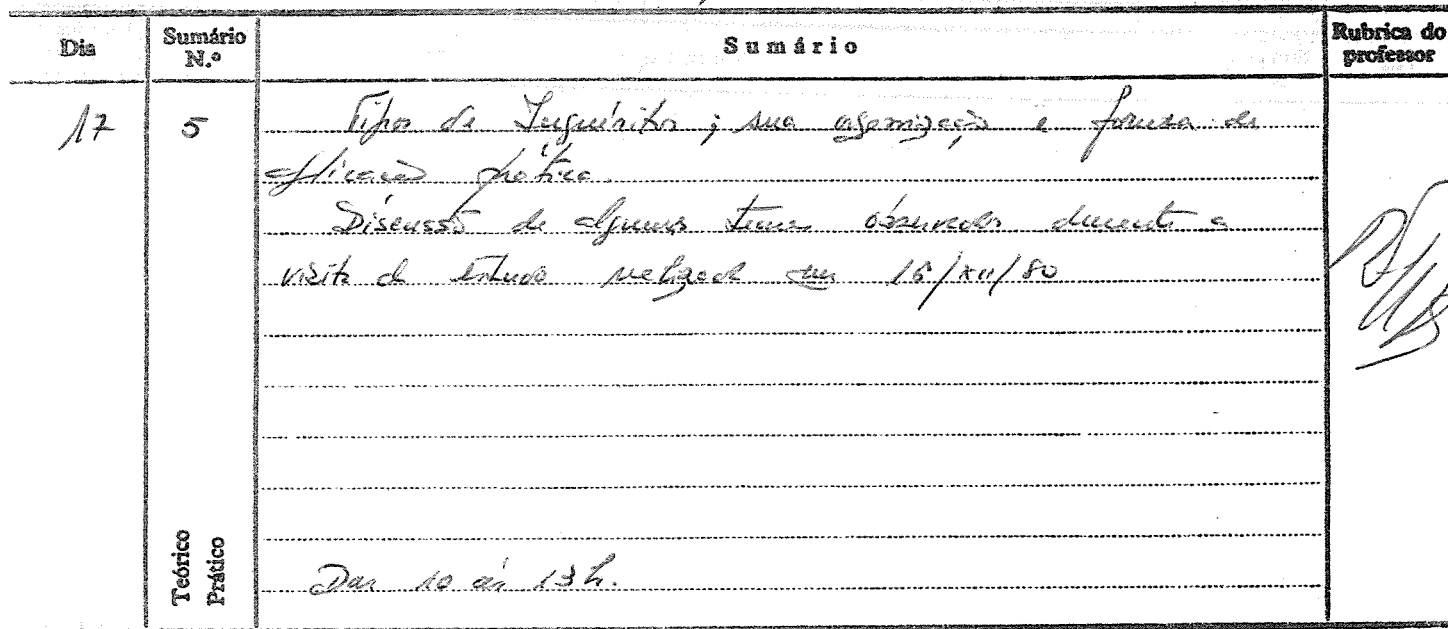 Dia
Sumário N.º
Sumário
Rubrica do professor
17
5
Tipos de Inquéritos; sua organização e forma de
aplicação prática.
Discussão de alguns temas observados durante a
visita de estudo realizada em 16/XII/80
Teórico
Prático
Das 10 às 13 h.